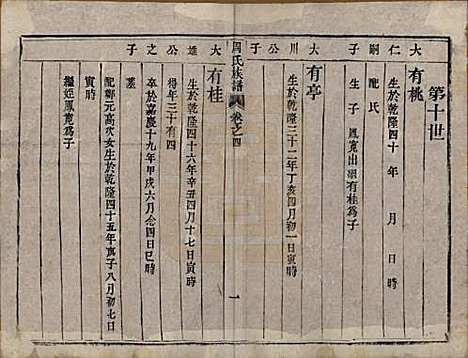 第十世
大仁嗣子
有桃
生於乾隆四十年月日
配氏
生子鳳寬出嗣有桂為子
大川公子
有亭
生於乾隆三十二年丁亥四月初一日寅時
周氏族譜
卷之四
一
大雄公之子
有桂
生於乾隆四十六年辛丑四月十七日寅時
得年三十有四
卒於嘉慶十九年甲戌六月念四日巳時
墓
配鄭元高次女生於乾隆四十五年庚子八月初七日
寅時
繼姪鳳寬為子